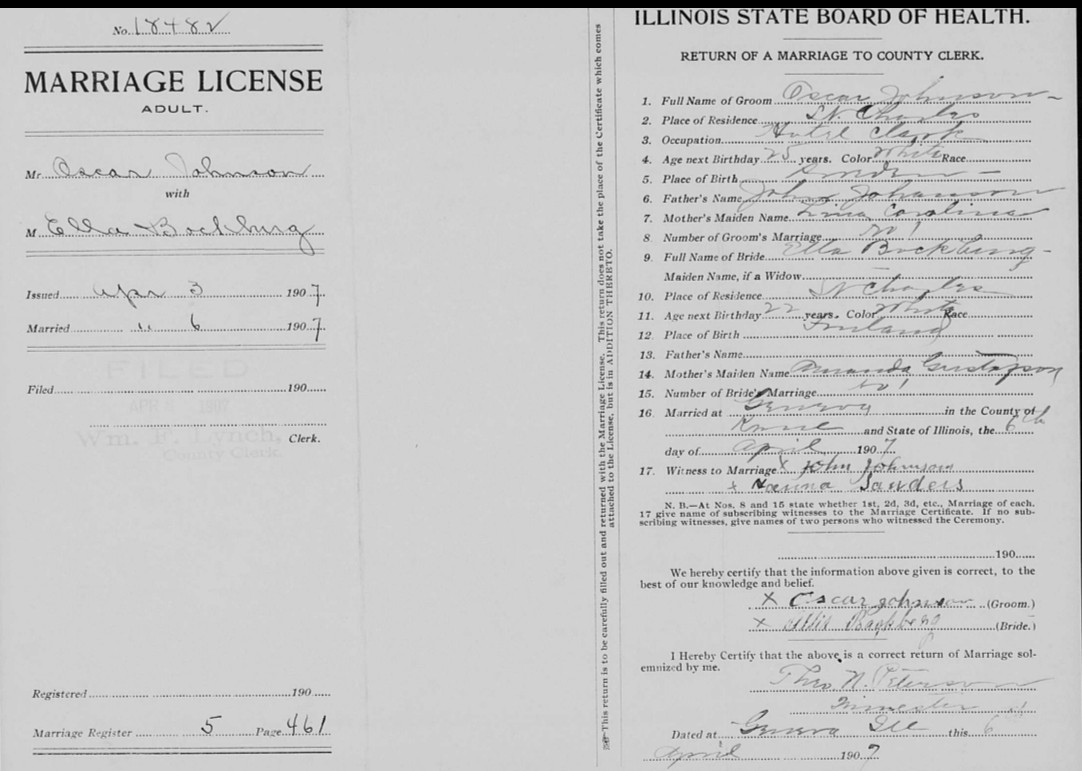 No. 18482
MARRIAGE LICENSE
ADULT.
Mr. Oscar Johnson
with
M. Ella Bockburg
Issued Apr 3 1907
Married " 6 1907
FILED
Filed 190
APR 1907
Wm. F. Lynch,
Clerk.
County Clerk.
Registered 190
Marriage Register 5 Page 461
This return is to be carefully filled out and returned with the Marriage License. This return does not take the place of the Certificate which comes
attached to the License, but is in ADDITION THERETO.
ILLINOIS STATE BOARD OF HEALTH.
RETURN OF A MARRIAGE TO COUNTY CLERK.
1. Full Name of Groom Oscar Johnson
2. Place of Residence St Charles
3. Occupation Hotel Clerk
4. Age next Birthday 25 years. Color White Race
5. Place of Birth Sweden
6. Father's Name John Johanson
7. Mother's Maiden Name Carolina
8. Number of Groom's Marriage No 1
9. Full Name of Bride Ella Bockburg
Maiden Name, if a Widow
10. Place of Residence St Charles
11. Age next Birthday 22 years. Color White Race
12. Place of Birth Finland
13. Father's Name
14. Mother's Maiden Name Amanda Gustafson
15. Number of Bride's Marriage No 1
16. Married at Geneva in the County of
Kane and State of Illinois, the 6th
day of April 1907
17. Witness to Marriage x John Johnson
x Hanna Sanders
N. B.—At Nos. 8 and 15 state whether 1st, 2d, 3d, etc., Marriage of each.
17 give name of subscribing witnesses to the Marriage Certificate. If no sub-
scribing witnesses, give names of two persons who witnessed the Ceremony.
190
We hereby certify that the information above given is correct, to the
best of our knowledge and belief.
x Oscar Johnson (Groom.)
x (Bride.)
I Hereby Certify that the above is a correct return of Marriage sol-
emnized by me.
Theo N. Peterson
Minister
Dated at Geneva Ill this 6
April 1907